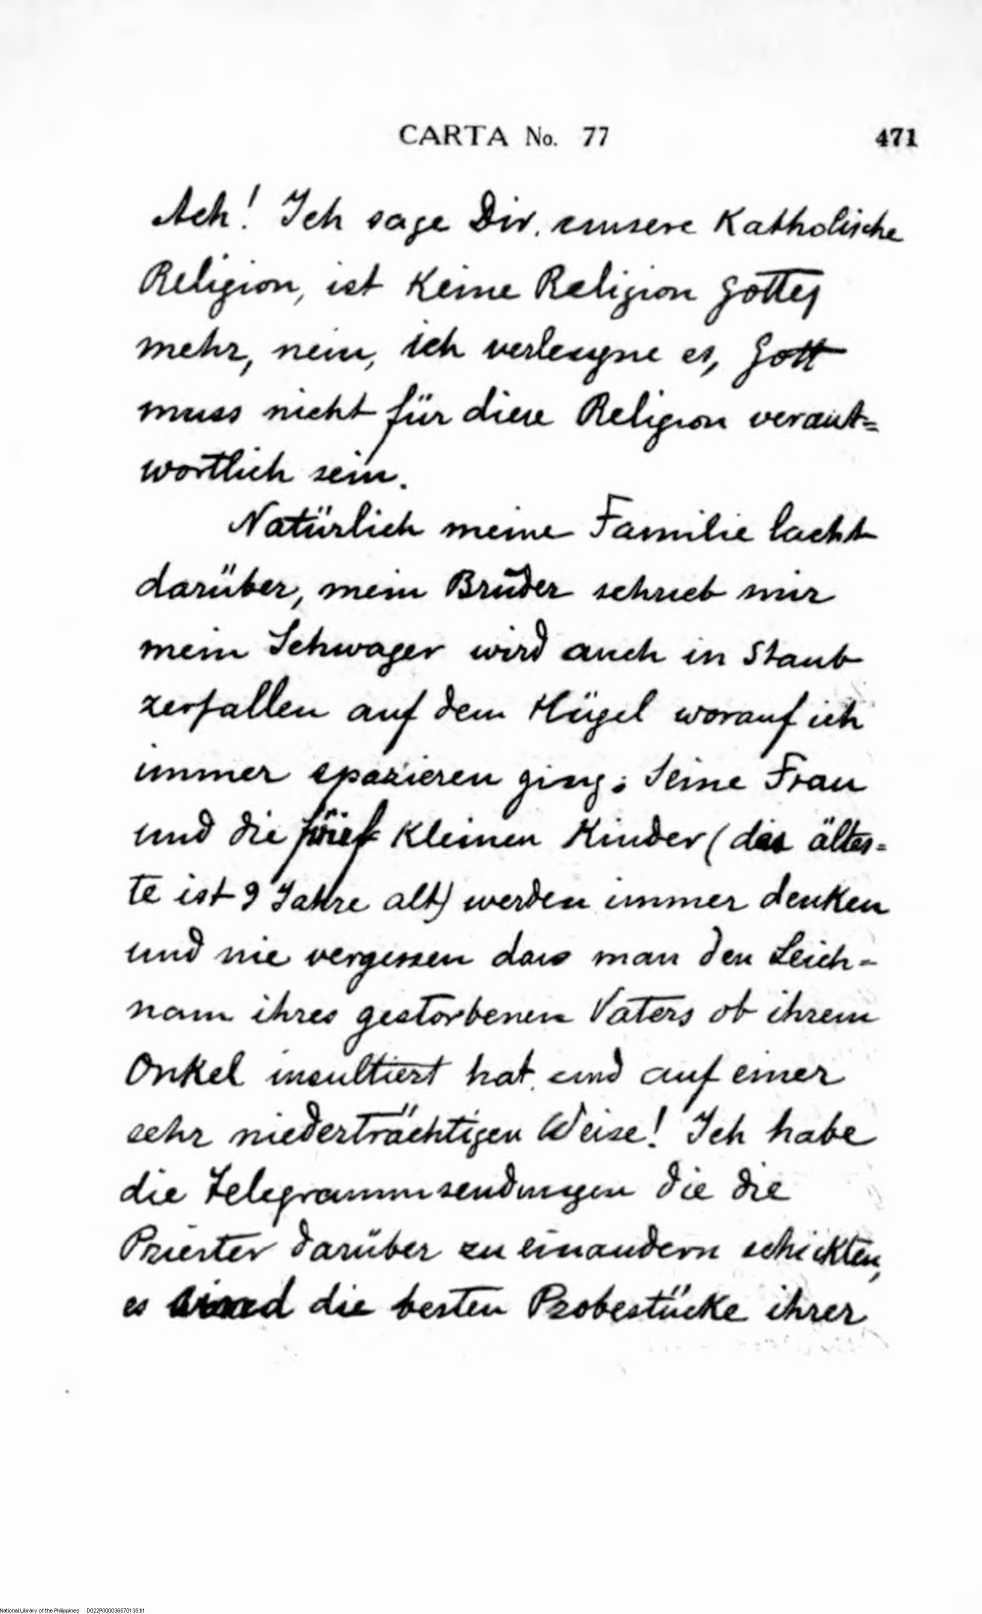 CARTA No. 77 471
Ach! Ich sage Dir, unsere Katholische
Religion, ist Keine Religion Gottes
mehr, nein, ich verleugne es, Gott
muss nicht für diese Religion verant=
wortlich sein.
Natürlich meine Familie lacht
darüber, mein Bruder schrieb mir
mein Schwager wird auch in Staub
zerfallen auf dem Hügel worauf ich
immer spazieren ging; Seine Frau
und die fünf Kleinen Kinder (das ältes=
te ist 9 Jahre alt) werden immer denken
und nie vergessen dass man den Leich-
nam ihres gestorbenen Vaters ob ihrem
Onkel insultiert hat, und auf einer
sehr niederträchtigen Weise! Ich habe
die Telegrammsendungen die die
Priester darüber zu einandern schickten,
es sind die besten Probestücke ihrer
National Library of the Philippines